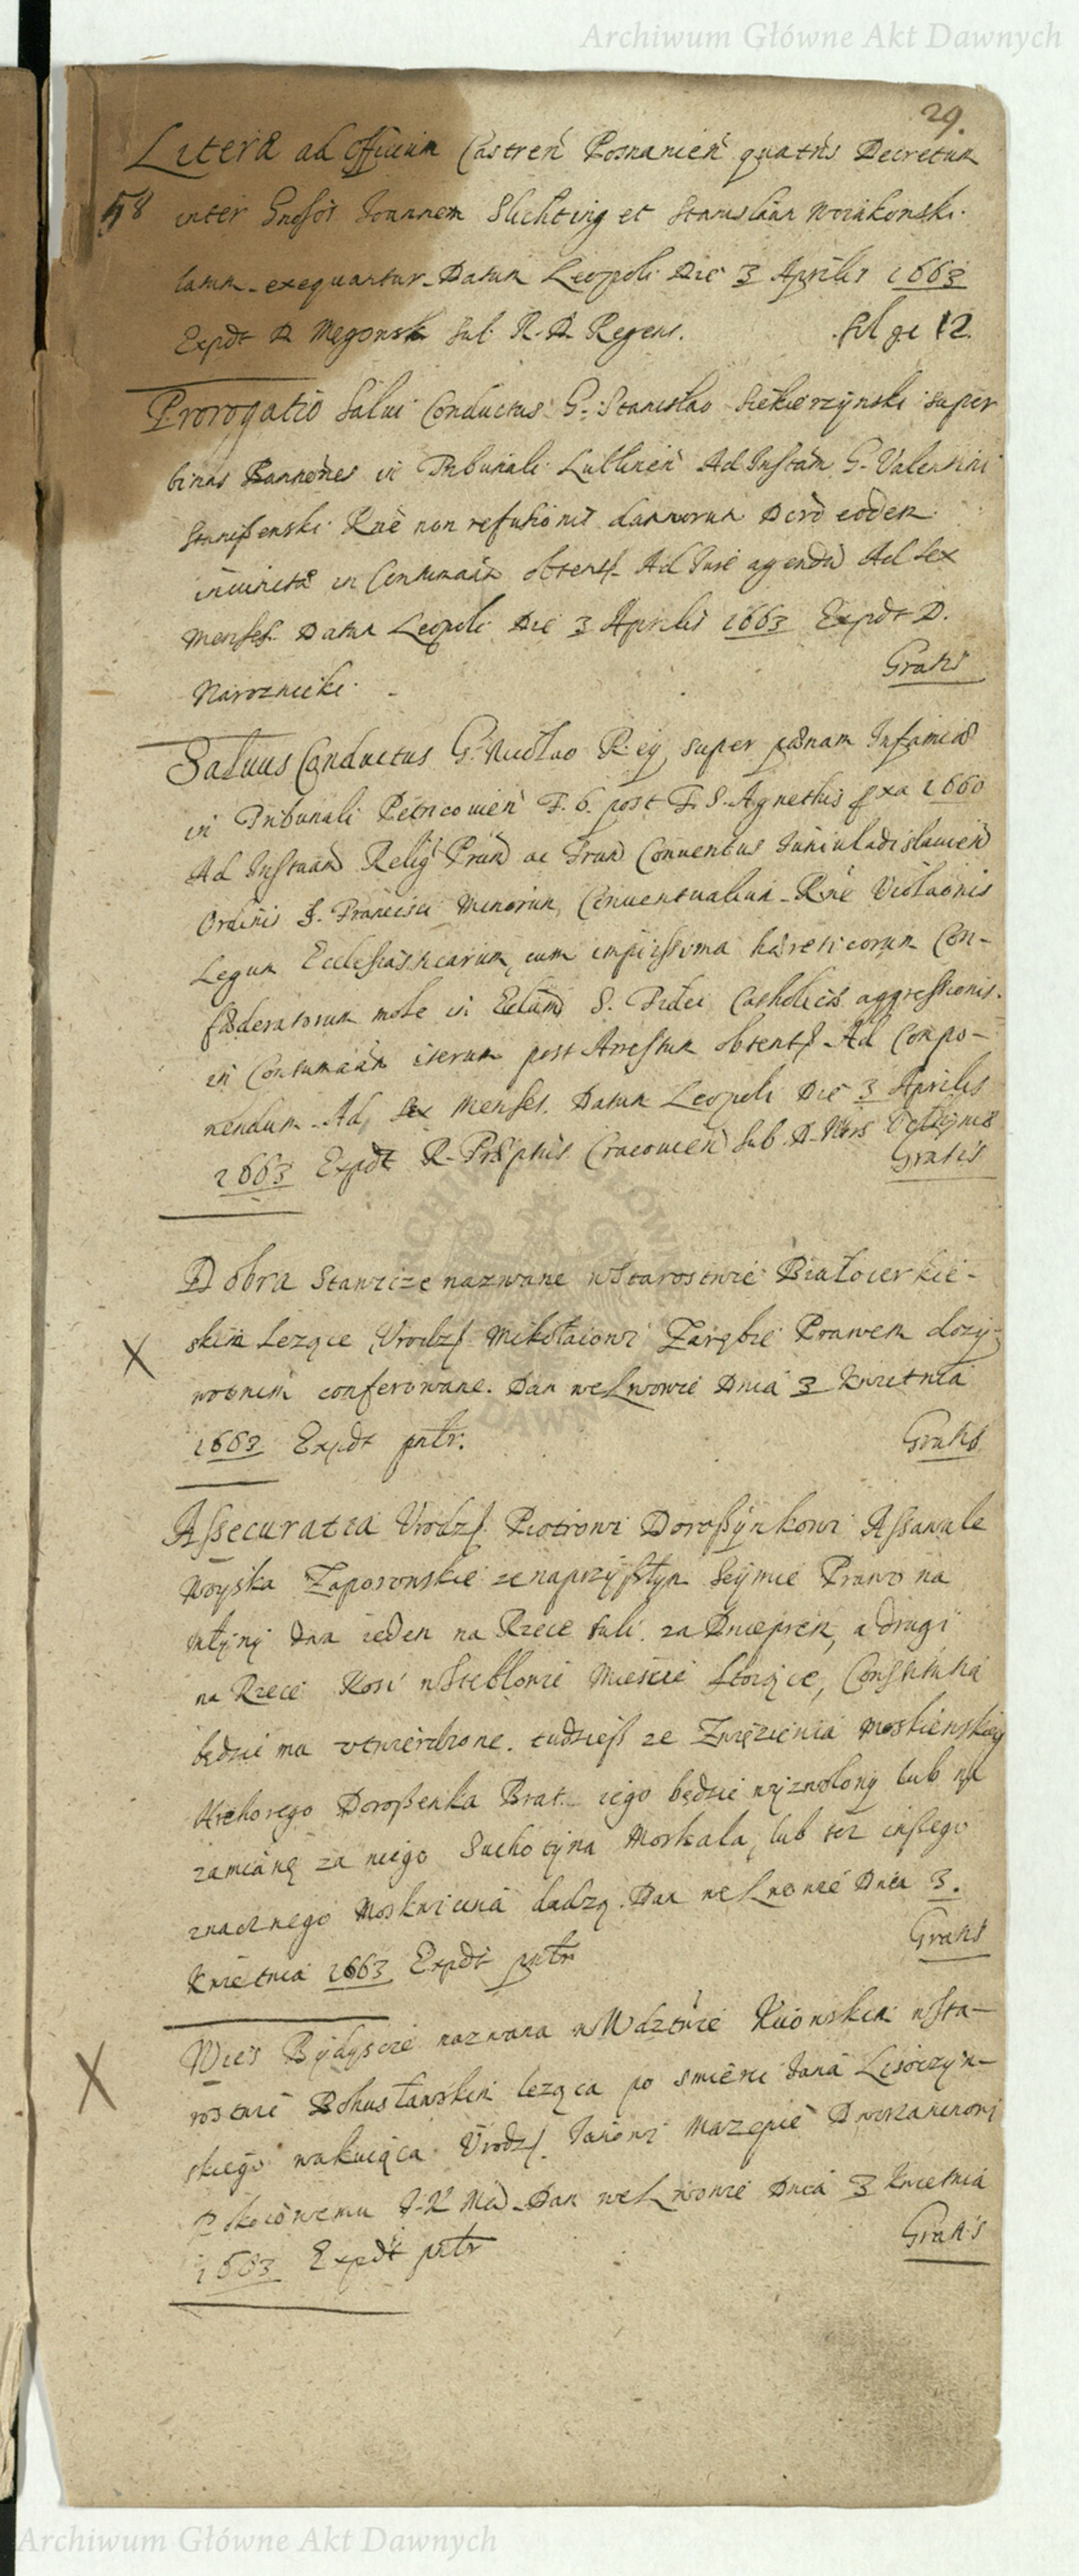 Archiwum Główne Akt Dawnych
29.
Literæ ad Officium Castren Posnanien quatns Decretum
58 inter Gnosos Joannem Slichting et Stanislaum
latum exequantur Datum Leopoli Die 3 Aprilis 1663
Expdt D. Sub R. D. Regens. fl ge 12.
Prorogatio Salui Conductus G. Stanislao Siekierzynski super
binas Bannones in Tribunali Lublinen Ad Instam G. Valentini
Rne non refusionis damnorum eodem
in Contumaam obtent Ad Jure agendu Ad Sex
Menses. Datum Leopoli Die 3 Aprilis 1663 Expdt D.
Naroznicki. Gratis
Saluus Conductus G. Nicolao Rey super pœnam Infamiæ
in Tribunali Petricouien F. 6. post F. S. Agnethis 1660
Ad Instaam Relig Prum ac Frum Conuentus Juniuladislauien
Ordinis S. Francisci Minorum Conuentualium Rne Violaonis
Legum Ecclesiasticarum, cum impiissima hæreticorum Con-
fœderatorum mole in S. Fidei Catholicæ aggressionis.
in Contumaam iterum post Arestum obtent Ad Compo-
nendum Ad Sex Menses. Datum Leopoli Die 3 Aprilis
1663 Expdt R. Cracouien Sub D.
Gratis
Dobra Stawicze nazwane w Starostwie Białocerkie-
X skim Lezące Urodz Mikołaiowi Zarębie Prawem dozy-
wotnim conferowane. Dan we Lwowie Dnia 3 kwietnia
1663 Expdt pntr. Gratis
Assecuratia Urodz Piotrowi Doroszynkowi Assawule
Woyska Zaporowskie ze na przyszłym Seymie Prawo na
młyny dwa ieden na Rzece Suli za Dnieprem, a drugi
na Rzece Rosi w Steblowie Miescie stoiące, Constitutia
będzie ma utwierdzone. tudziesz ze Zwięzienia Moskiewskiey
Hrehorego Doroszenka Brat iego będzie wyzwolony lub na
zamianę za niego Suchotyna Moskala, lub tez inszego
znacznego Moskwicina dadzą. Dan we Lwowie Dnia 3.
Kwietnia 1663 Expdt pntr Gratis
X Wies Bydyscie nazwana w Wdztwie Kiiowskim w Sta-
rostwie Bohusławskim lezaca po smierci Jana Lisiczyn-
skiego wakuiąca Urodz. Janowi Mazepie Dworzaninowi
Pokoiowemu J. K. Mci Dan we Lwowie Dnia 3 Kwietnia
1663 Expdt pntr Gratis
Archiwum Główne Akt Dawnych